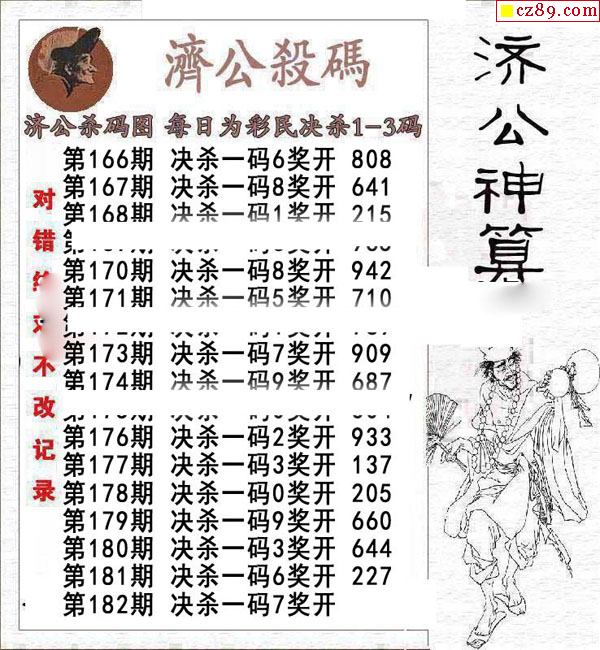 cz89.com
濟公殺碼
济公杀码图 每日为彩民决杀1-3码
第166期 决杀一码6奖开 808
第167期 决杀一码8奖开 641
第168期 决杀一码1奖开 215
第170期 决杀一码8奖开 942
第171期 决杀一码5奖开 710
第173期 决杀一码7奖开 909
第174期 决杀一码9奖开 687
第176期 决杀一码2奖开 933
第177期 决杀一码3奖开 137
第178期 决杀一码0奖开 205
第179期 决杀一码9奖开 660
第180期 决杀一码3奖开 644
第181期 决杀一码6奖开 227
第182期 决杀一码7奖开
对错 不改记录
济公神算